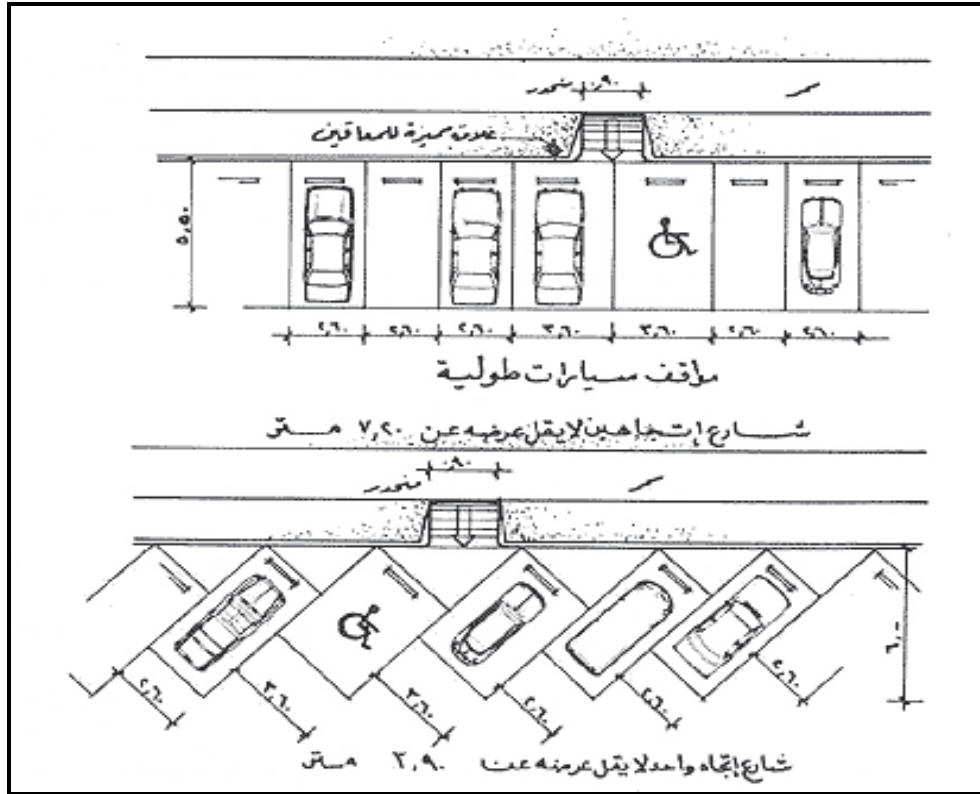 ممر
٠,٩٠
منحدر
علامة مميزة للمعاقين
٥,٥٠
٢,٦٠ ٢,٦٠ ٢,٦٠ ٣,٦٠ ٣,٦٠ ٢,٦٠ ٢,٦٠
مواقف سيارات طولية
شارع إتجاهين لا يقل عرضه عن ٧,٢٠ متر
ممر
٠,٩٠
منحدر
٦,٠٠
٢,٦٠ ٣,٦٠ ٣,٦٠ ٢,٦٠ ٢,٦٠ ٢,٦٠
شارع إتجاه واحد لا يقل عرضه عن ٣,٩٠ متر